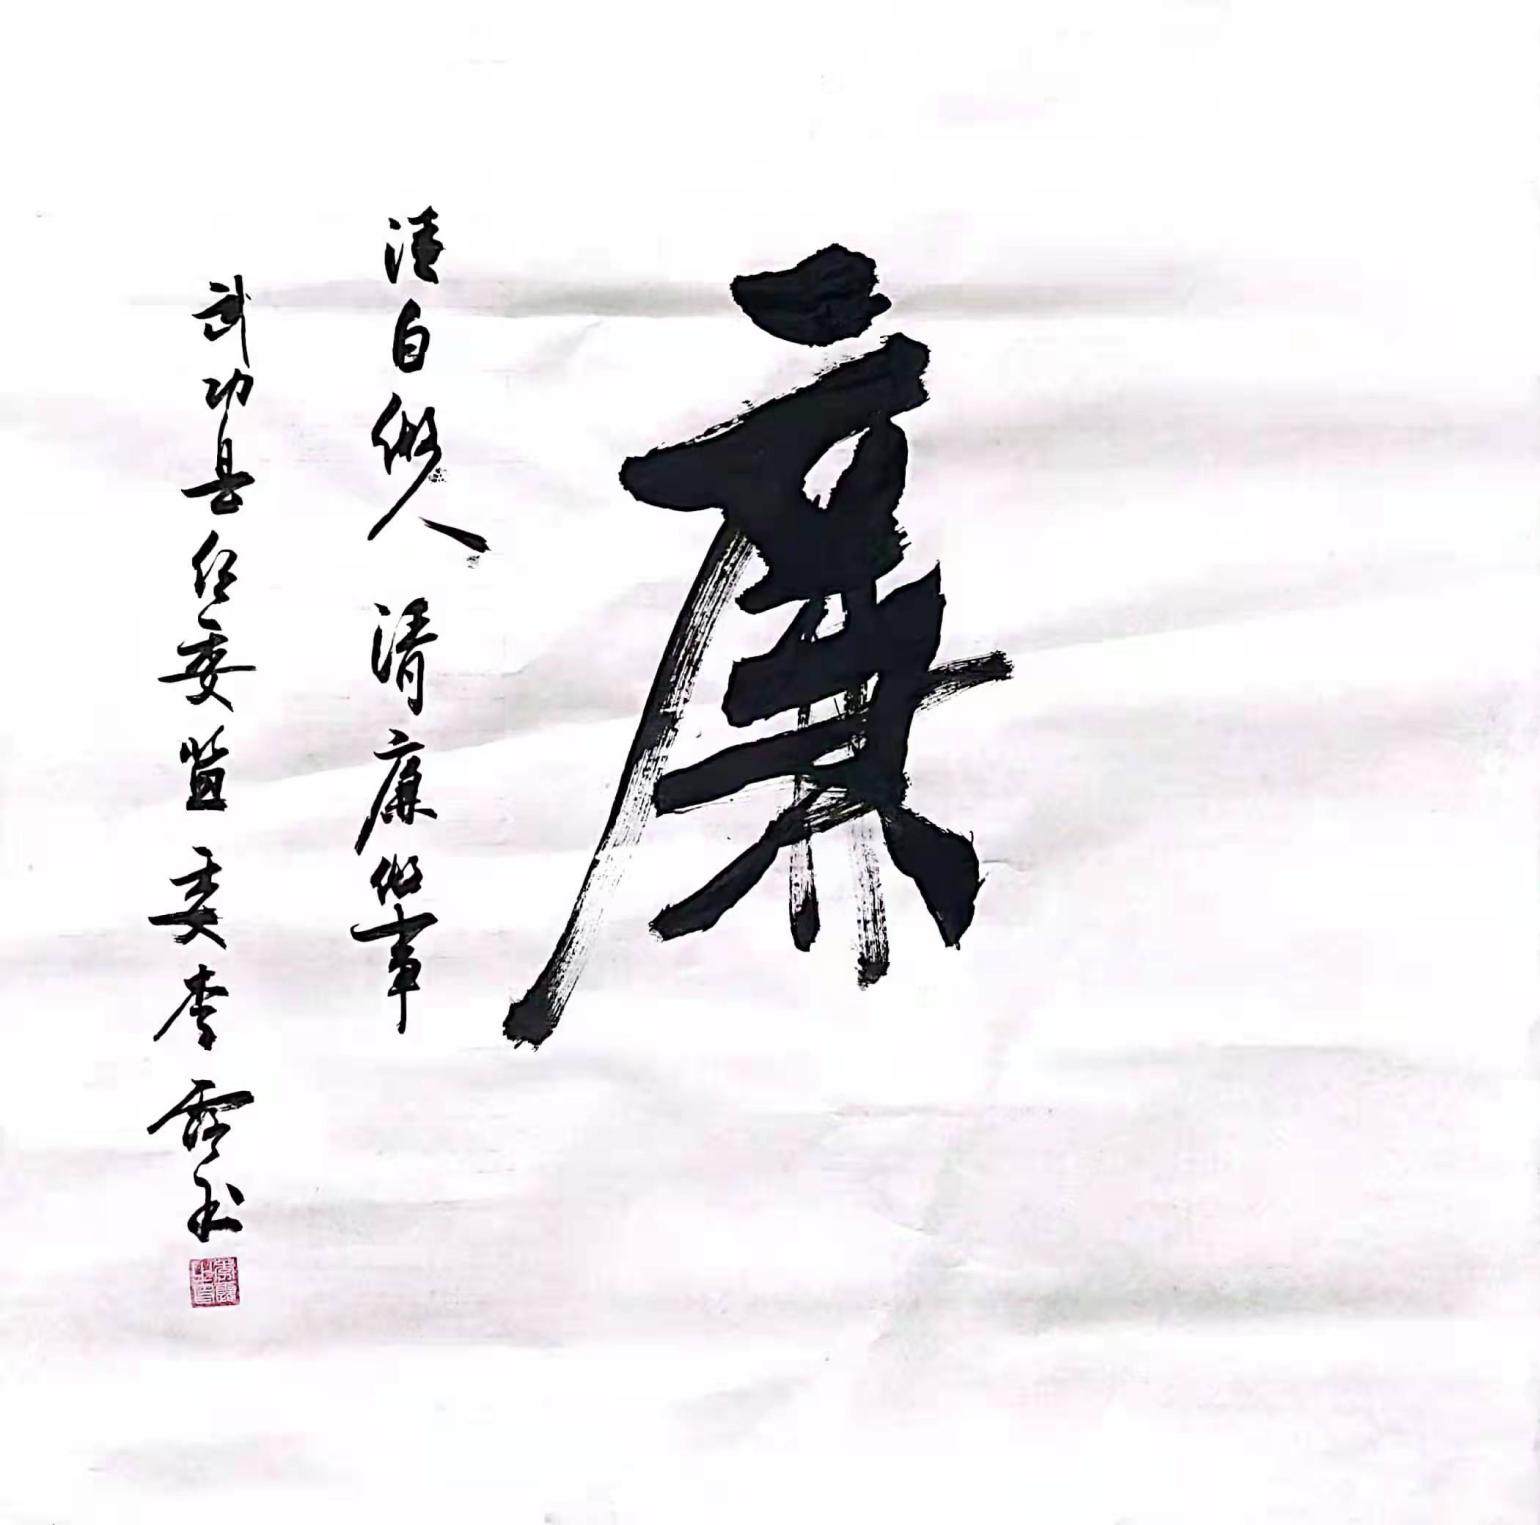 廉
清白做人 清廉做事
武功县纪委监委李书